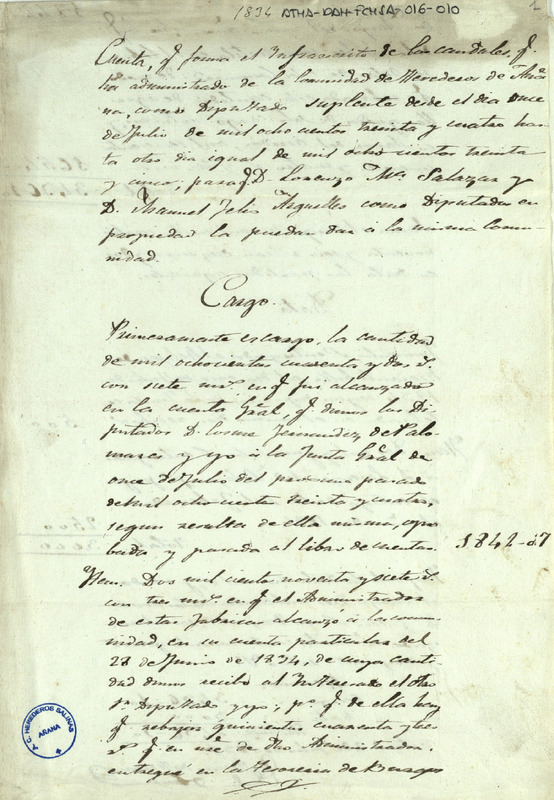 1834 ATHA-DAH-FCHSA-016-010
1
Cuenta, q.e forma el Infrascrito de los caudales, q.e
ha administrado de la Comunidad de Herederos de Aña
na, como Diputado suplente desde el dia once
de Julio de mil ocho cientos treinta y cuatro has
ta otro dia igual de mil ocho cientos treinta
y cinco, para q.e D. Lorenzo M.a Salazar y
D. Manuel Felis Arguelles como Diputados en
propiedad la puedan dar a la misma Comu-
nidad.
Cargo.
Primeramente es cargo, la cantidad
de mil ochocientos cuarenta y dos r.s
con siete mrs. en q.e fui alcanzado
en la cuenta Gral, q.e dimos los Di-
putados D. Cosme Fernandez de Palo-
mares y yo á la Junta Gral de
once de Julio del proximo pasado
de mil ocho ciento treinta y cuatro,
segun resulta de ella misma, apro
bada y pasada al libro de cuentas. 1842-"7
Item. Dos mil ciento noventa y siete r.s
con tres mrs. en q.e el Administrador
de estas fabricas alcanzó á la comu-
nidad, en su cuenta particular del
28 de Junio de 1834, de cuya canti
dad dimos recibo al Interesado el otro
S.r Diputado y yo; p.s q.e de ella hay
q.e rebajar quinientos cuarenta y tres
r.s q.e en de dho Administrador,
entregué en la Tesoreria de Burgos
Y. C. HEREDEROS SALINAS
AÑANA